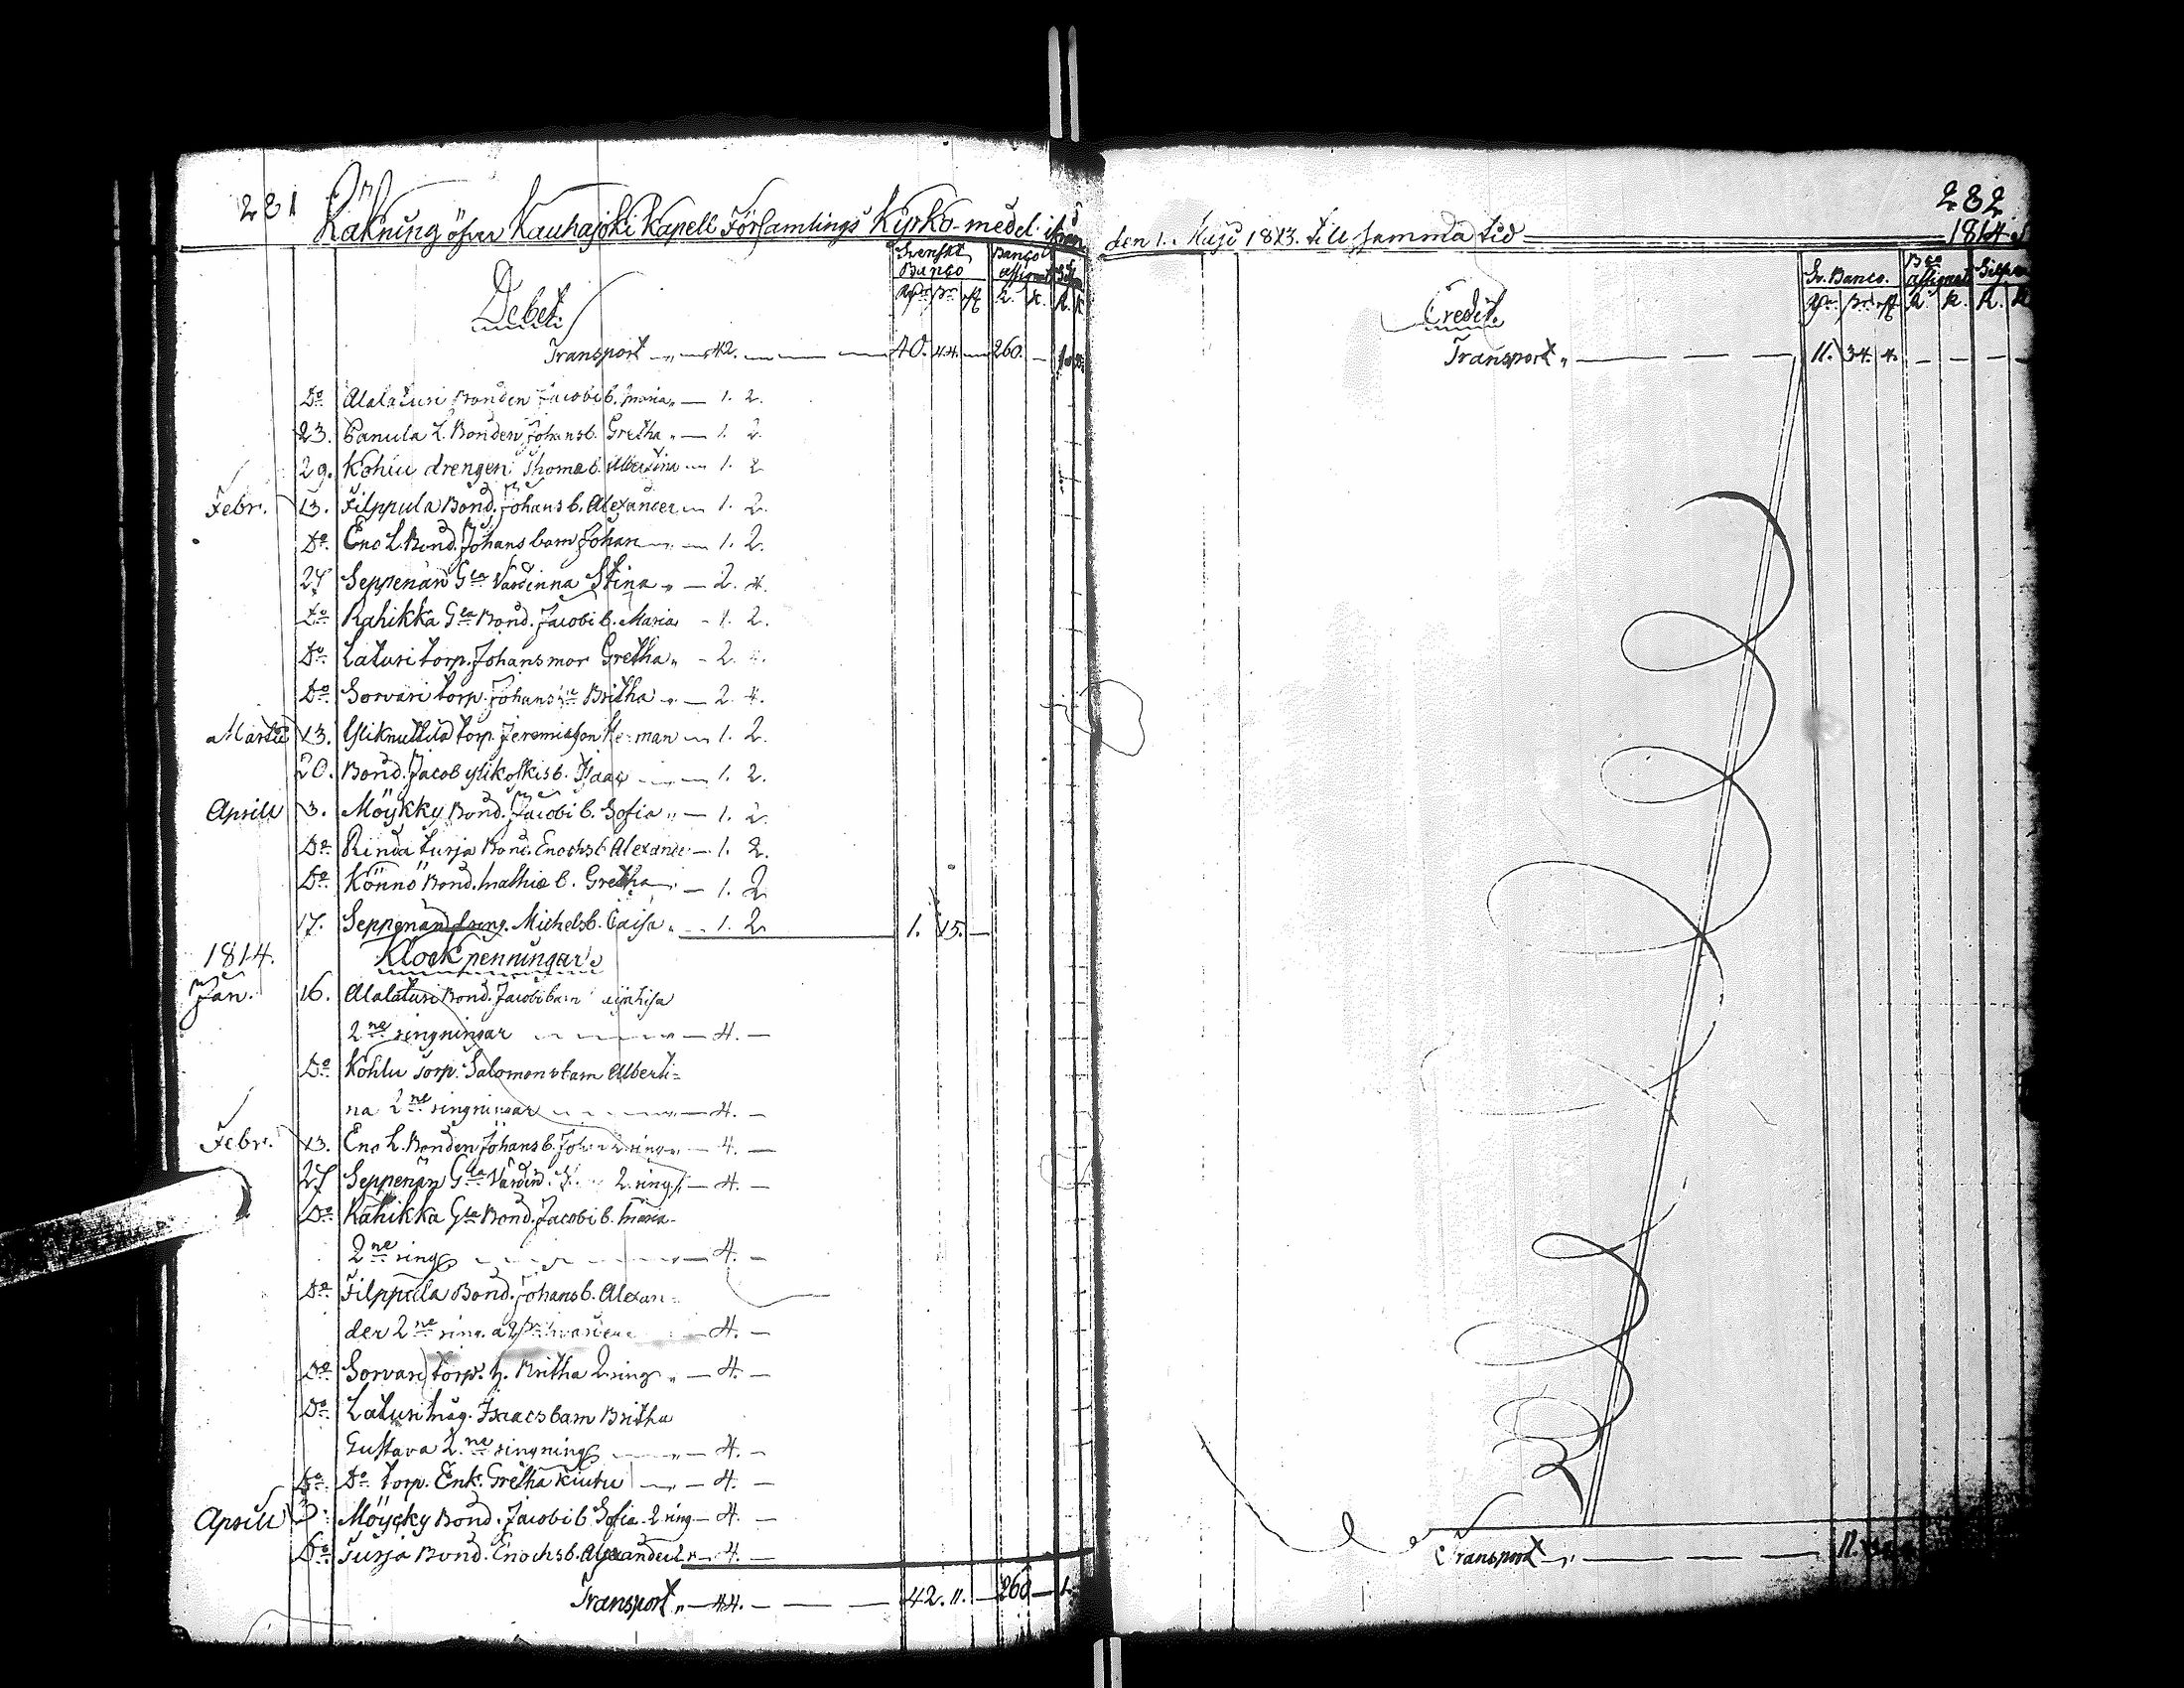 281
Räkning öfver Kauhajoki Kapell Församlings Kyrko-medel ifrån
Svenskt Banco
Banco assignat
Debet.
Transport „ — 42. — 40. 44. — 260. —
Do Alalatusi Bonden Jacobi b. Maria „ — 1. 2.
23. Panula L. Bonden Johans b. Gretha „ — 1. 2.
29. Kohlu drengen Thomæ b. Albertina — 1. 2
Febr. 13. Filppula Bond. Johans b. Alexander — 1. 2.
Do Eno L. Bond. Johans barn Johan — 1. 2.
27 Seppenän Gla Värdinna Stina „ — 2. 4.
Do Rahikka Gla Bond. Jacobi b. Maria - 1. 2.
Do Latusi torp. Johans mor Gretha „ - 2.
Do Sorvari torp. Johans Britha „ — 2. 4.
Martii 13. Yliknuttila torp. Jeremiæ son Herman — 1. 2.
20. Bond. Jacob ylikoskis b. Isaac — 1. 2.
Aprill 3. Möykky Bond. Jacobi b. Sofia „ — 1. 2.
Do Rinda turja Bond. Enochs b. Alexander — 1. 2.
Do Könnö Bond. Mathiæ b. Gretha — 1. 2
17. Seppenän Michels b. Caisa „ — 1. 2 1. 15. —
1814. Klockpenningar
Jan. 16. Alalatusi Bond. Jacobi barn
2ne ringningar — 4. —
Do Kohlu torp. Salomons barn Alberti=
na 2ne ringningar — 4. —
Febr. 13. Eno L. Bonden Johans b. Johan 2 ring — 4. —
27 Seppenän Gla Värdin. 2 ring — 4. —
Do Rahikka Gla Bond. Jacobi b. Maria
2ne ring — 4. —
Do Filppula Bond. Johans b. Alexan=
der 2ne ring. — 4. —
Do Sorvari torp. h. Britha 2 ring „ — 4. —
Do Latusi måg. Isaacs barn Britha
Gustava 2ne ringning — 4. —
Do Do torp. Enk. Gretha — 4. —
Aprill 3. Möycky Bond. Jacobi b. Sofia 2 ring — 4. —
Do Turja Bond. Enochs b. Alexander 2 r — 4. —
Transport „ — 44. — 42. 11. — 260 — 1.
282
den 1. Maji 1813. till samma tid 1814
Sv. Banco. Bco assignat Silfver
Credit.
Transport „ — 11. 34. 4. —
Transport „ — 11.